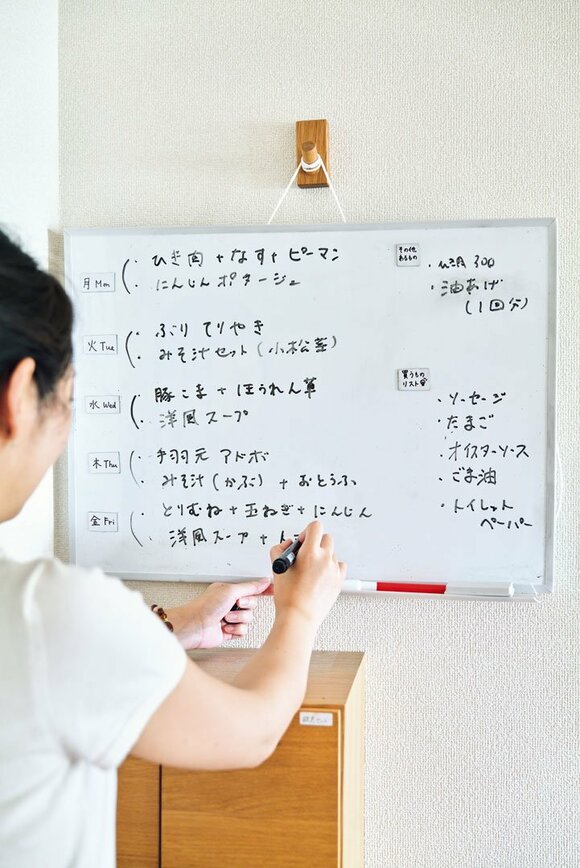 月 Mon
・ひき肉+なす+ピーマン
・にんじんポタージュ
火 Tue
・ぶり てりやき
・みそ汁セット(小松菜)
水 Wed
・豚こま+ほうれん草
・洋風スープ
木 Thu
・手羽元 アドボ
・みそ汁(かぶ)+おとうふ
金 Fri
・とりむね+玉ねぎ+にんじん
・洋風スープ+
その他
あるもの
300
・油あげ
(1回分)
買うもの
リスト
・ソーセージ
・たまご
・オイスターソース
・ごま油
・トイレット
ペーパー